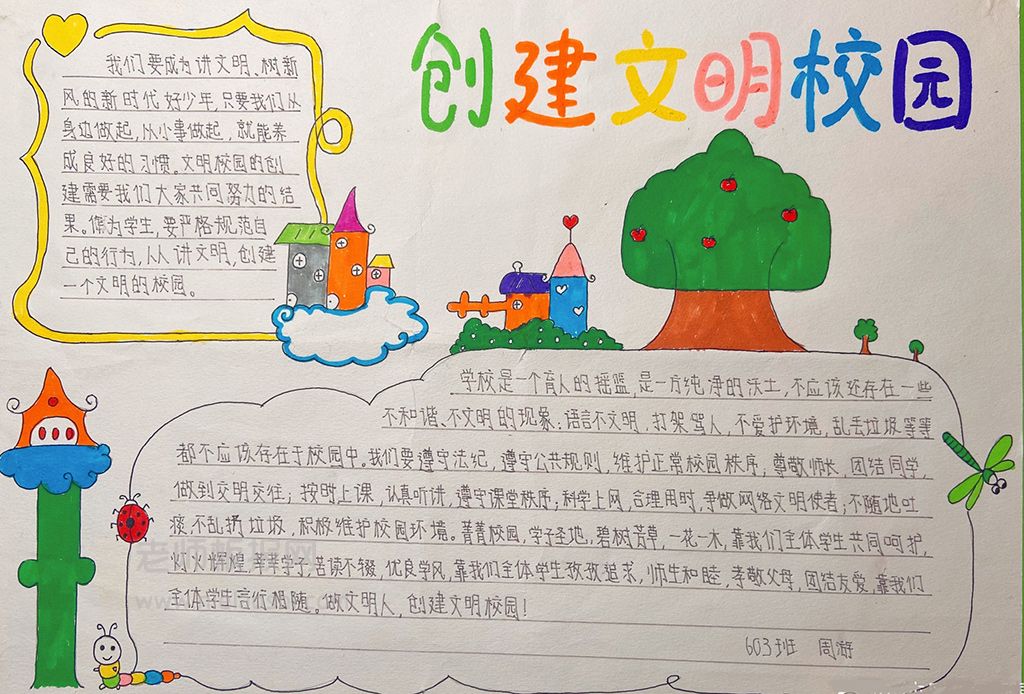 创建文明校园
我们要成为讲文明、树新
风的新时代好少年,只要我们从
身边做起,从小事做起,就能养
成良好的习惯。文明校园的创
建需要我们大家共同努力的结
果。做为学生,要严格规范自
己的行为,从从讲文明,创建
一个文明的校园。
学校是一个育人的摇篮,是一方纯净的沃土,不应该还存在一些
不和谐、不文明的现象:语言不文明,打架骂人,不爱护环境,乱丢垃圾等等
都不应该存在于校园中。我们要遵守法纪,遵守公共规则,维护正常校园秩序;尊敬师长,团结同学,
做到交明交往;按时上课,认真听讲,遵守课堂秩序;科学上网,合理用时,争做网络文明使者;不随地吐
痰,不乱扔垃圾,积极维护校园环境。菁菁校园,学子圣地,碧树芳草,一花一木,靠我们全体学生共同呵护,
灯火辉煌,莘莘学子,苦读不辍,优良学风,靠我们全体学生孜孜追求,师生和睦,孝敬父母,团结友爱,靠我们
全体学生言行相随。做文明人,创建文明校园!
603班 周游